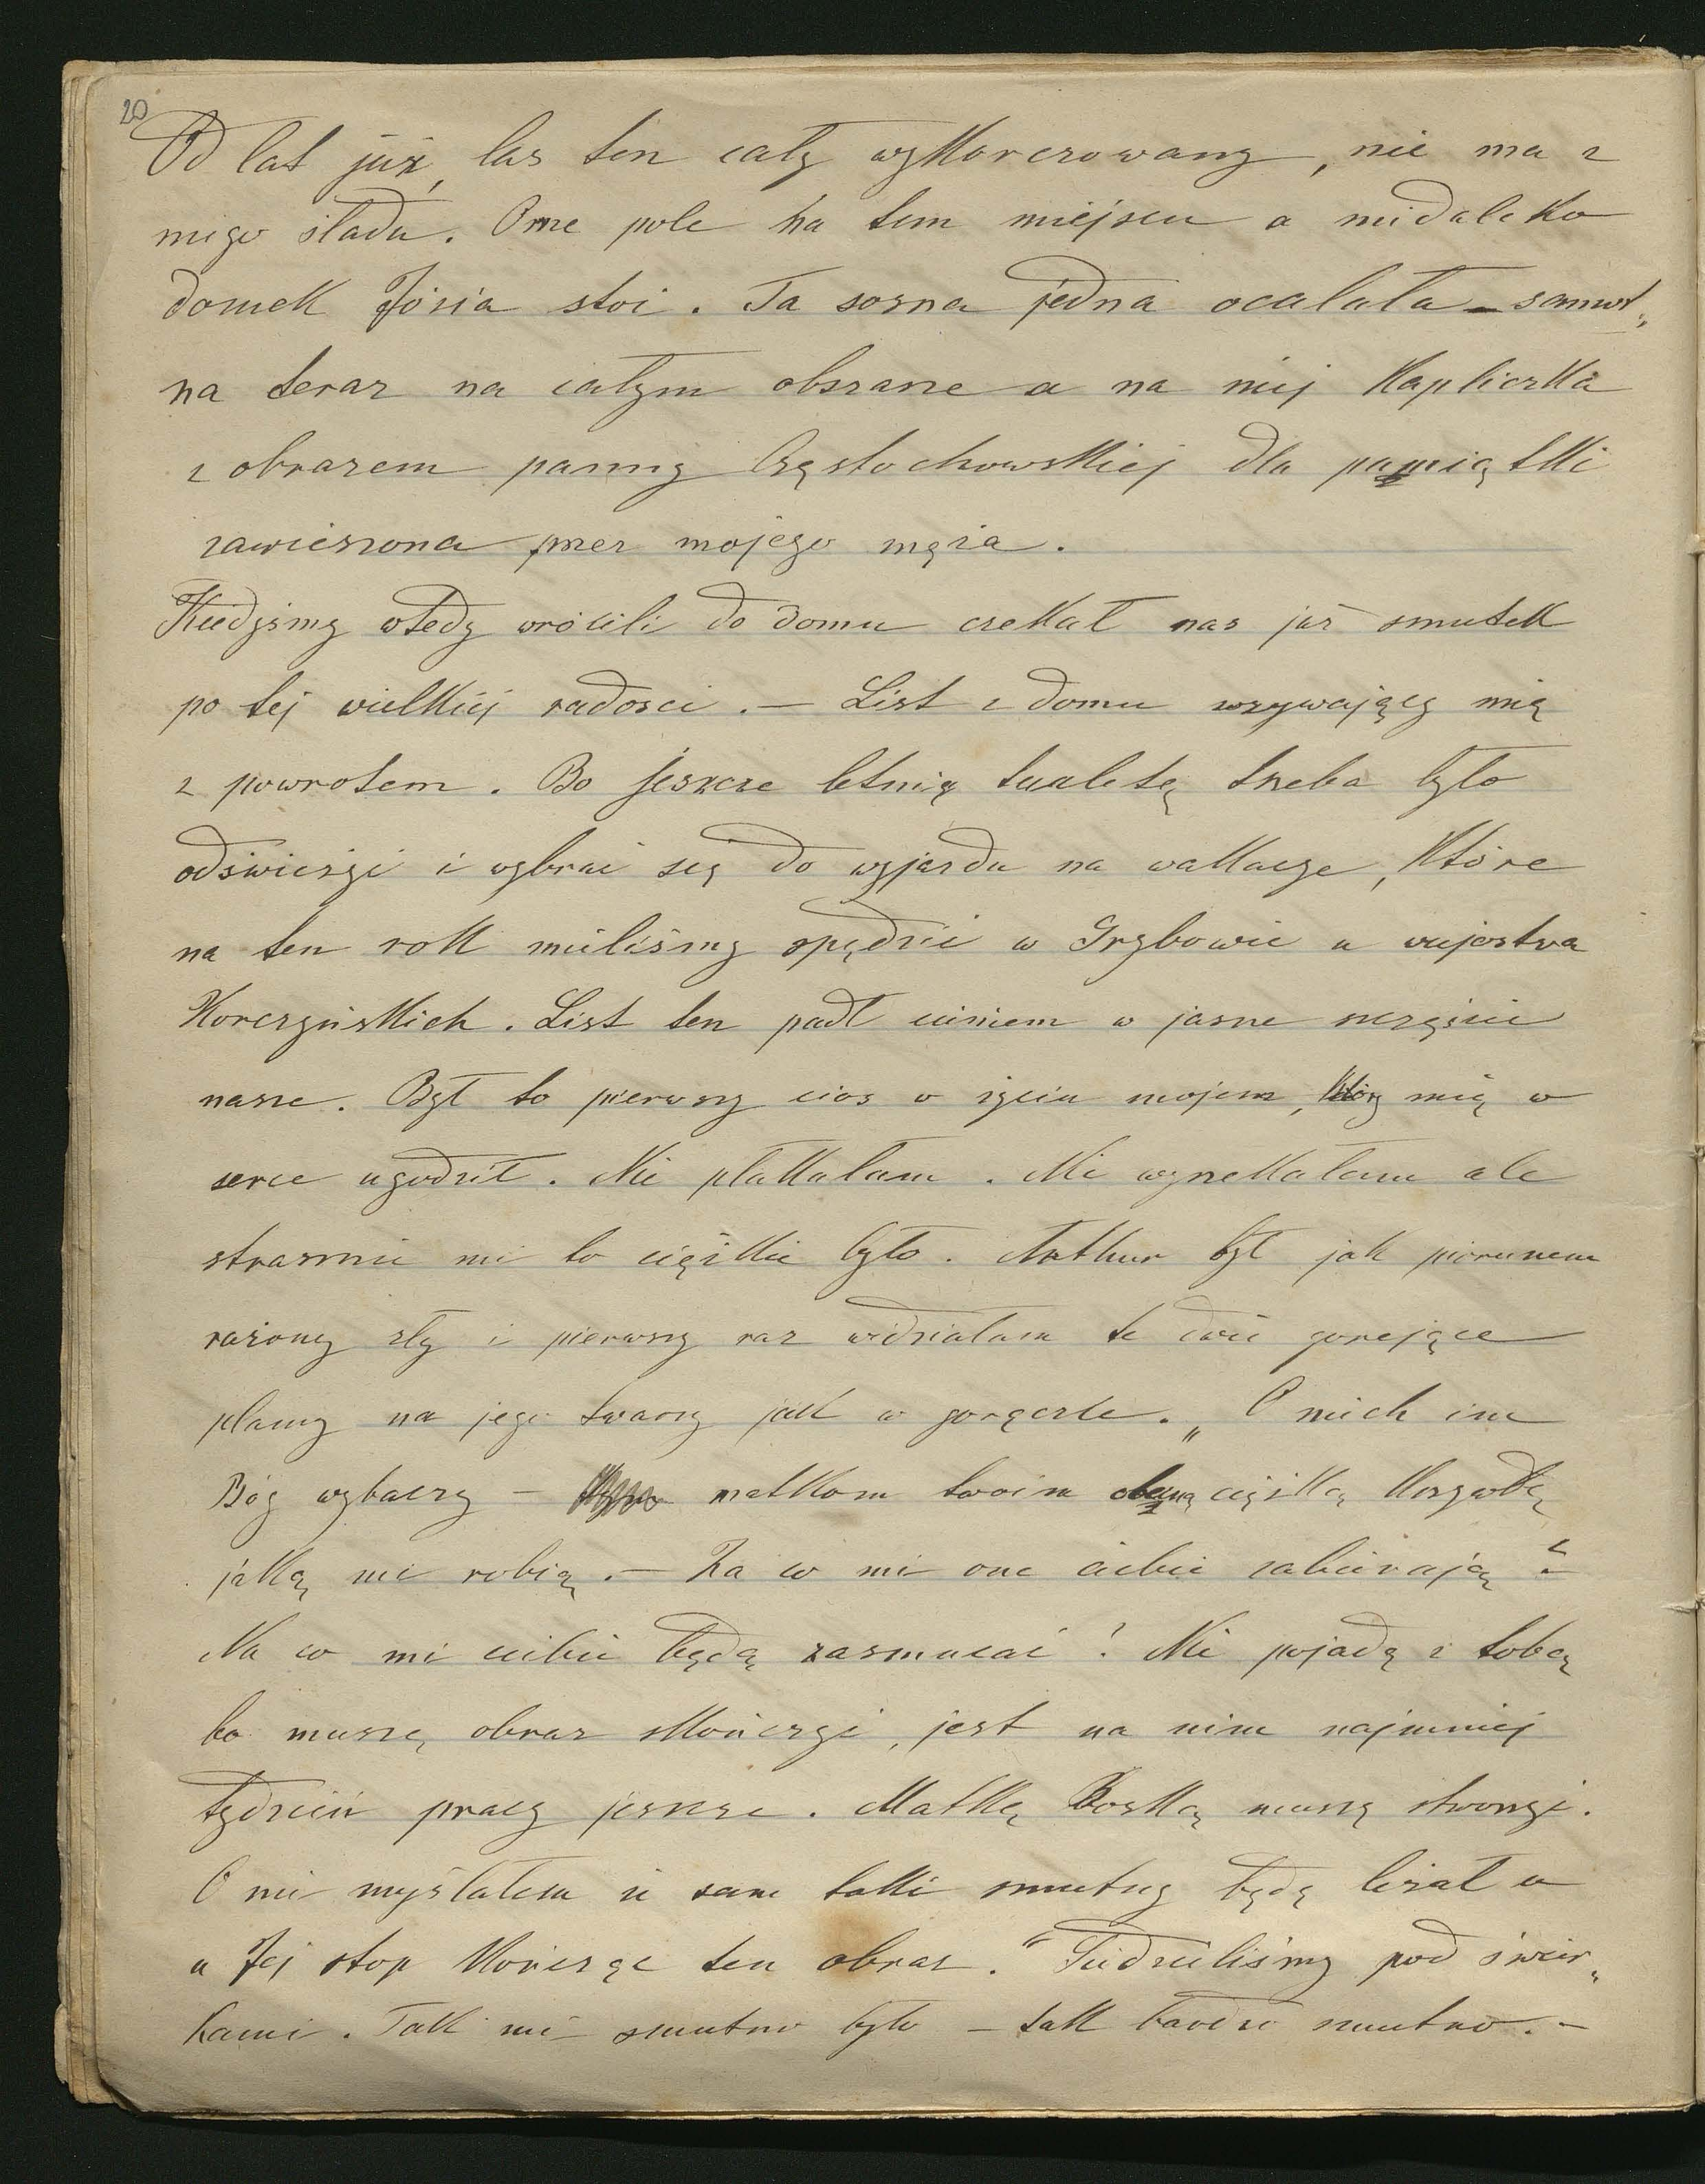 20
Od lat już, las ten cały wykorczowany, nie ma z
niego śladu. Orne pole na tem miejscu a niedaleko
domek Józia stoi. Ta sosna jedna ocalała – samot„
na teraz na całym obszarze a na niej kapliczka
z obrazem panny Częstochowskiej dla pamiątki
zawieszona przez mojego męża.
Kiedyśmy wtedy wrócili do domu czekał nas już smutek
po tej wielkiej radości. – List z domu wzywający mię
z powrotem. Bo jeszcze letnią tualetę trzeba było
odświeżyć i wybrać się do wyjazdu na wakacye, które
na ten rok mieliśmy spędzić w Grybowie u wujostwa
Korczyńskich. List ten padł cieniem w jasne szczęście
nasze. Był to pierwszy cios w życiu mojem, który mię w
serce ugodził. Nie płakałam. Nie wyrzekałam ale
strasznie mi to ciężkie było. Arthur był jak piorunem
rażony zły i pierwszy raz widziałam te dwie gorejące
plamy na jego twarzy jak w gorączce. „O niech im
Bóg wybaczy – matkom twoim obczną ciężką krzywdę
jaką mi robią. – Za co mi one ciebie zabierają?
Na co mi ciebie będą zasmucać! Nie pojadę z tobą
bo muszę obraz skończyć, jest na nim najmniej
tydzień pracy jeszcze. Matkę Boską muszę stworzyć.
O nie myślałem że sam taki smutny będę leżał u
u Jej stop kończąc ten obraz." Siedzieliśmy pod świer„
kami. Tak mi smutno było – tak bardzo smutno. –